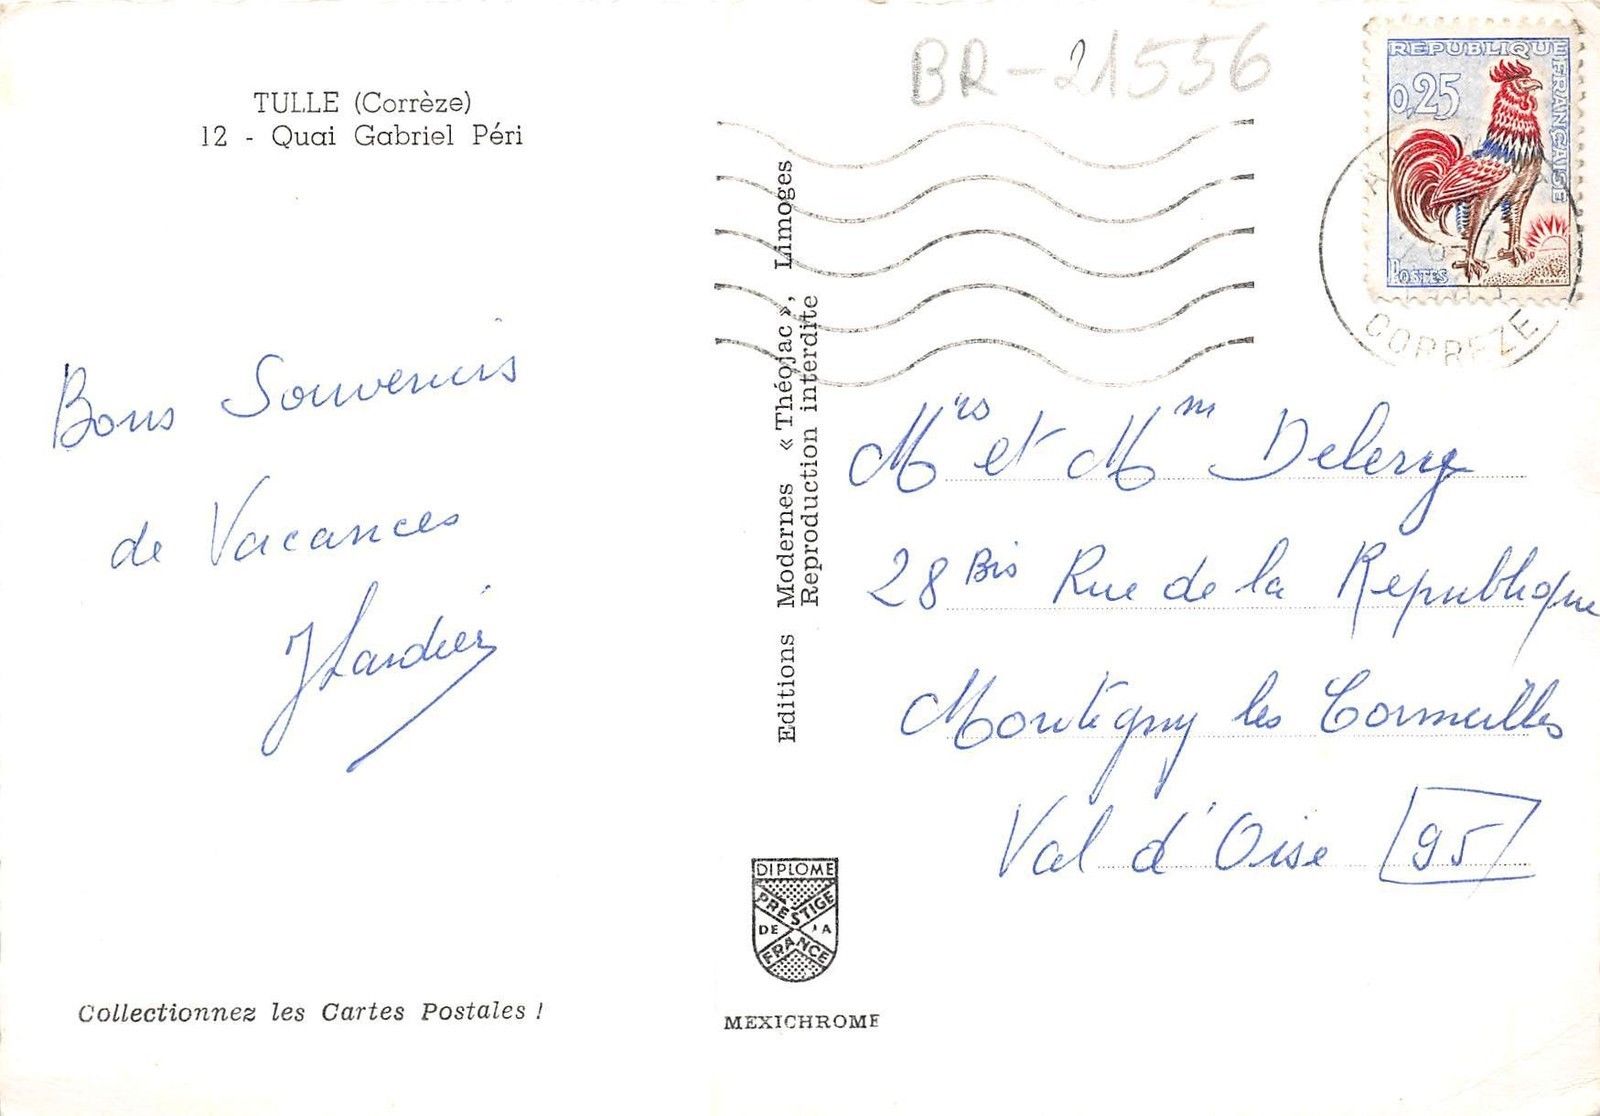 TULLE (Corrèze)
12 - Quai Gabriel Péri
Bons Souvenirs
de Vacances
BR-21556
REPUBLIQUE FRANÇAISE
0,25
POSTES
DECARIS
CORREZE
Editions Modernes « Théojac », Limoges
Reproduction interdite
Mrs et Mm
28 Bis Rue de la Republique
Montigny les Cormeilles
Val d'Oise 95
DIPLOME
PRESTIGE
DE LA
FRANCE
MEXICHROME
Collectionnez les Cartes Postales !